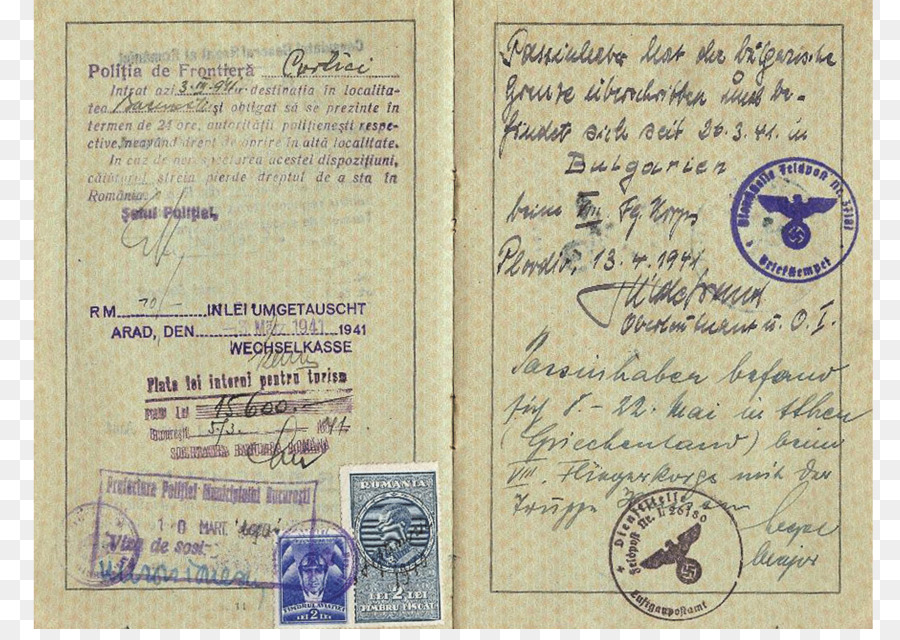 Poliția de Frontieră
Intrat azi 3. III 941. destinația în localita-
tea și obligat să se prezinte în
termen de 24 ore, autorității polițienești respe-
ctive, neavând drept de oprire în altă localitate.
In caz de nerespectarea acestei dispozițiuni,
călătorul strein pierde dreptul de a sta în
România.
Șeful Poliției,
RM 70/- IN LEI UMGETAUSCHT
ARAD, DEN MRZ. 1941 1941
WECHSELKASSE
Plata lei interni pentru turism
Lei 15600.-
București 5/3. 1941
Prefectura Poliției Municipiului București
10 MART. 1941
Viza de sosire
TIMBRUL AVIAȚIEI
LEI 2 LEI
ROMANIA
2 LEI
TIMBRU FISCAL
11
Passinhaber hat die bulgarische
Grenze überschritten und be-
findet sich seit 26.3.41. in
Bulgarien
beim VIII. Flg. Korps
Plovdiv, 13.4.1941
Oberleutnant u. O. I.
Dienststelle Feldpost Nr.
Briefstempel
Passinhaber befand
sich 8. - 22. Mai in Athen
(Griechenland) beim
VIII. Fliegerkorps mit der
Truppe
Major
Dienststelle
Feldpost Nr. L 26180
Luftgaupostamt